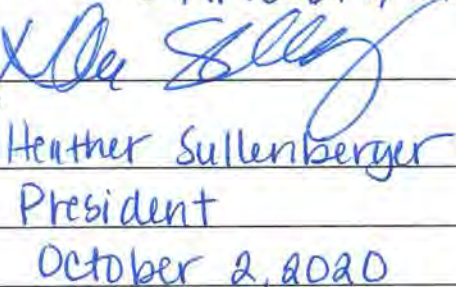 Heather Sullenberger
President
October 2, 2020